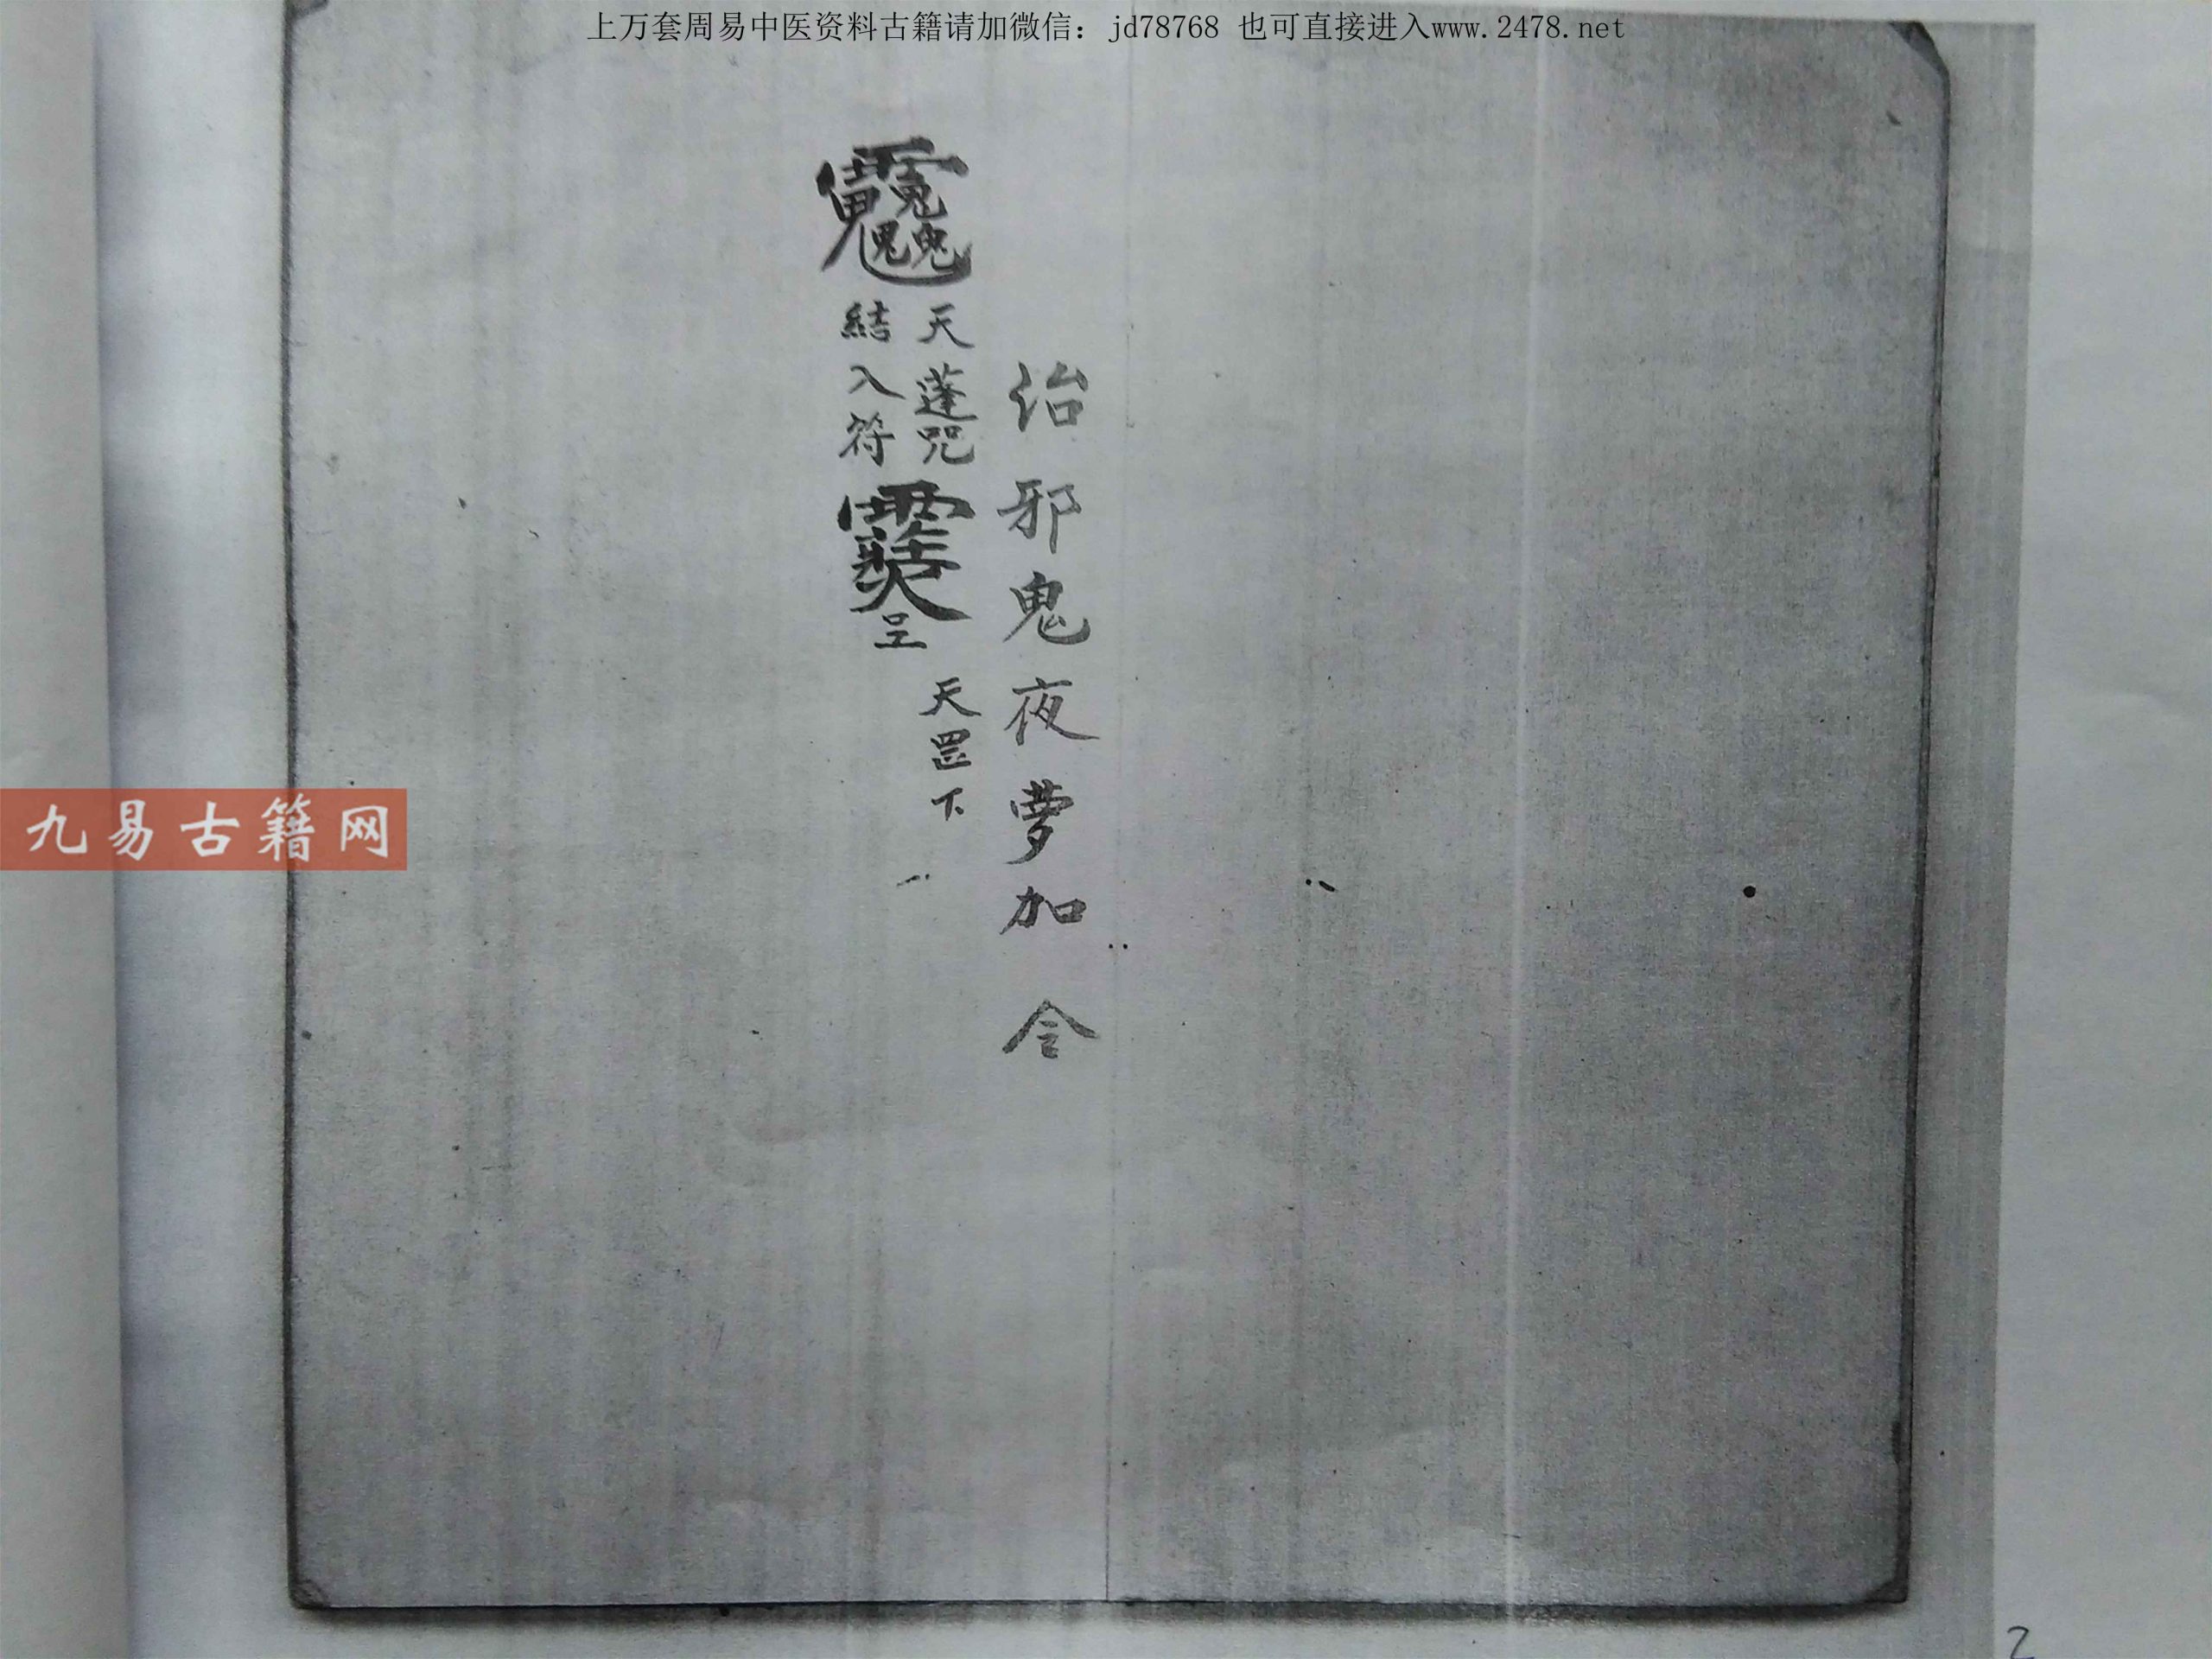 上万套周易中医资料古籍请加微信：jd78768 也可直接进入www.2478.net
治邪鬼夜夢加 令
天蓬咒
結入符
天罡下
九易古籍网
2